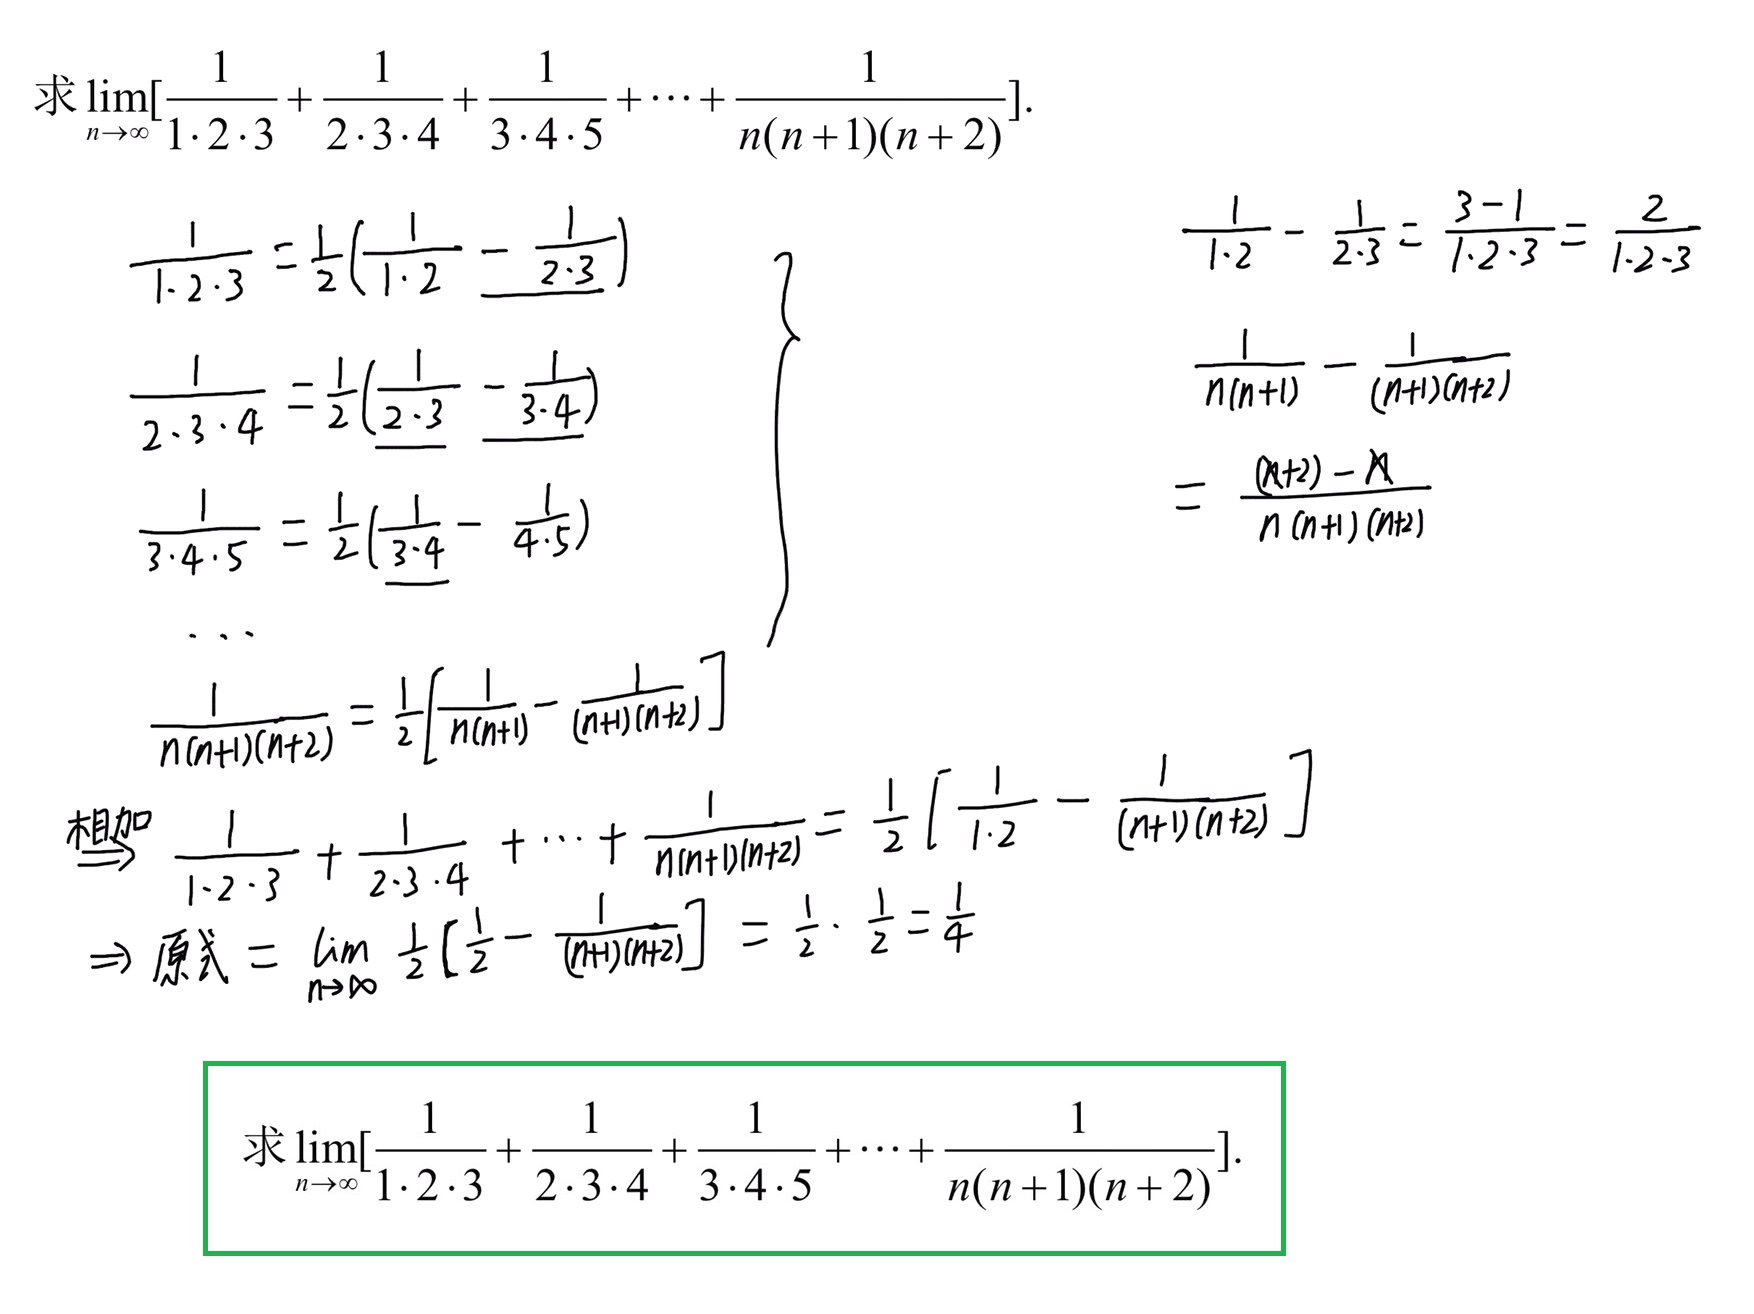 求 lim_{n→∞}[1/(1·2·3) + 1/(2·3·4) + 1/(3·4·5) + ··· + 1/(n(n+1)(n+2))].
1/(1·2·3) = 1/2(1/(1·2) − 1/(2·3))
1/(2·3·4) = 1/2(1/(2·3) − 1/(3·4))
1/(3·4·5) = 1/2(1/(3·4) − 1/(4·5))
···
1/(n(n+1)(n+2)) = 1/2[1/(n(n+1)) − 1/((n+1)(n+2))]
}
1/(1·2) − 1/(2·3) = (3−1)/(1·2·3) = 2/(1·2·3)
1/(n(n+1)) − 1/((n+1)(n+2))
= ((n+2)−n)/(n(n+1)(n+2))
相加 ⇒ 1/(1·2·3) + 1/(2·3·4) + ··· + 1/(n(n+1)(n+2)) = 1/2[1/(1·2) − 1/((n+1)(n+2))]
⇒ 原式 = lim_{n→∞} 1/2[1/2 − 1/((n+1)(n+2))] = 1/2 · 1/2 = 1/4
求 lim_{n→∞}[1/(1·2·3) + 1/(2·3·4) + 1/(3·4·5) + ··· + 1/(n(n+1)(n+2))].